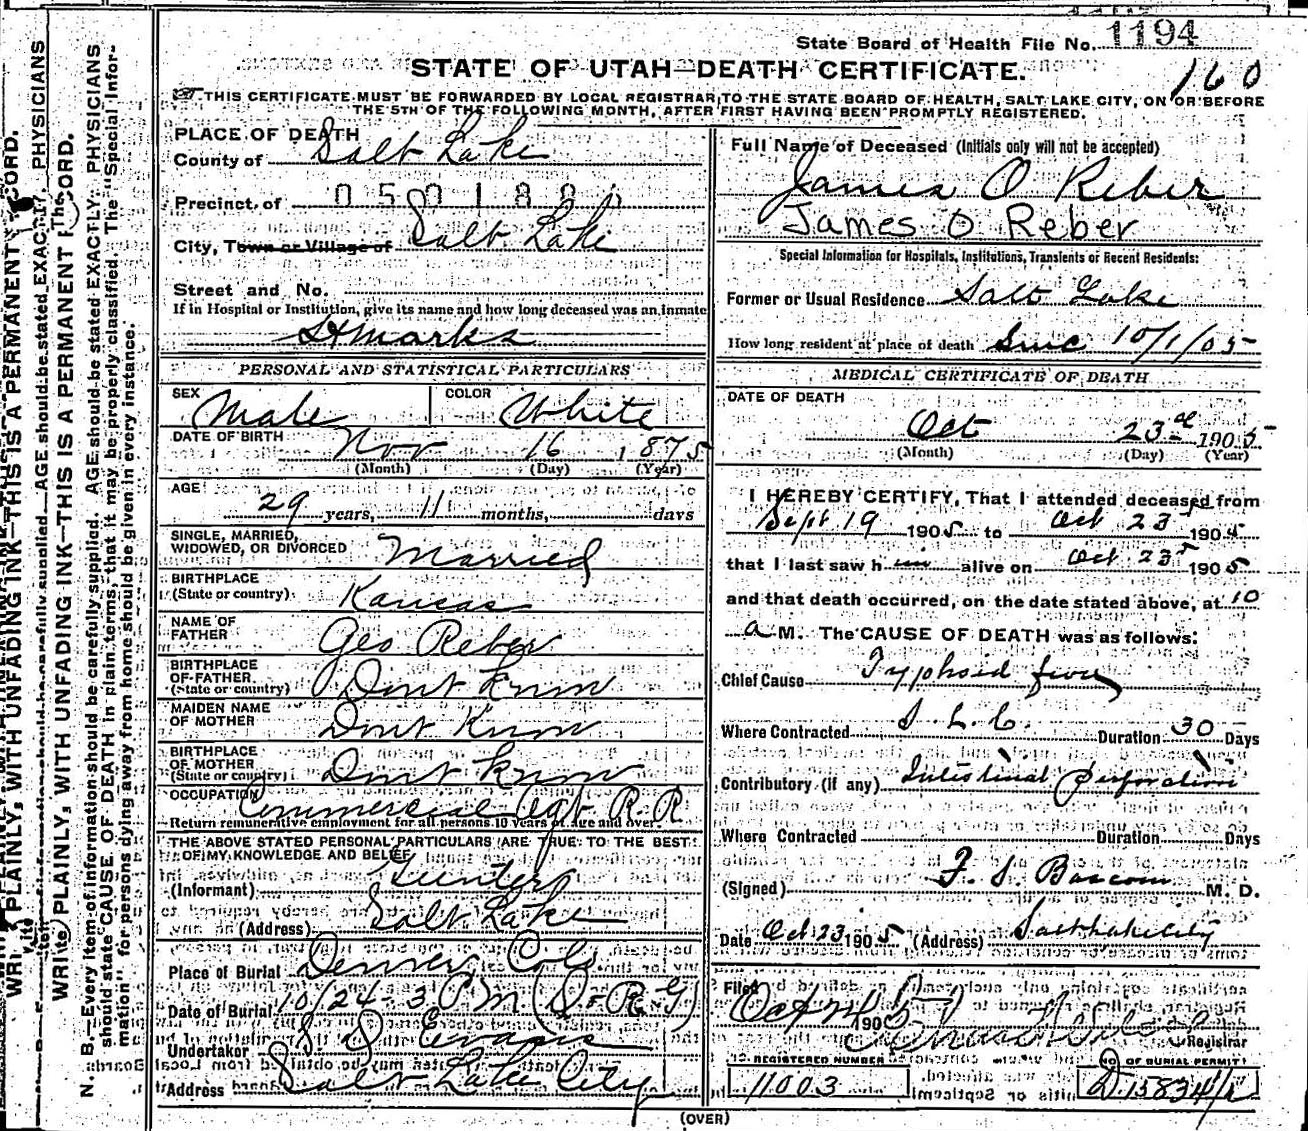 State Board of Health File No. 1194
STATE OF UTAH—DEATH CERTIFICATE.
160
THIS CERTIFICATE MUST BE FORWARDED BY LOCAL REGISTRAR TO THE STATE BOARD OF HEALTH, SALT LAKE CITY, ON OR BEFORE
THE 5TH OF THE FOLLOWING MONTH, AFTER FIRST HAVING BEEN PROMPTLY REGISTERED.
PLACE OF DEATH
County of Salt Lake
Precinct of 050180
City, Town or Village of Salt Lake
Street and No.
If in Hospital or Institution, give its name and how long deceased was an Inmate
St Marks
PERSONAL AND STATISTICAL PARTICULARS
SEX Male COLOR White
DATE OF BIRTH Nov 16 1875
(Month) (Day) (Year)
AGE 29 years, 11 months, days
SINGLE, MARRIED,
WIDOWED, OR DIVORCED Married
BIRTHPLACE
(State or country) Kansas
NAME OF
FATHER Geo Reber
BIRTHPLACE
OF FATHER
(State or country) Dont Know
MAIDEN NAME
OF MOTHER Dont Know
BIRTHPLACE
OF MOTHER
(State or country) Dont Know
OCCUPATION Commercial Agt R. R
Return remunerative employment for all persons 10 years of age and over.
THE ABOVE STATED PERSONAL PARTICULARS ARE TRUE TO THE BEST
OF MY KNOWLEDGE AND BELIEF
(Informant) Gunter
(Address) Salt Lake
Place of Burial Denver Colo
Date of Burial 10/24 - 3 P.M. (D & R G)
Undertaker S D Evans
Address Salt Lake City
Full Name of Deceased (Initials only will not be accepted)
James O Reber
James O Reber
Special Information for Hospitals, Institutions, Transients or Recent Residents:
Former or Usual Residence Salt Lake
How long resident at place of death Since 10/1/05
MEDICAL CERTIFICATE OF DEATH
DATE OF DEATH
Oct 23rd 1905
(Month) (Day) (Year)
I HEREBY CERTIFY, That I attended deceased from
Sept 19 1905 to Oct 23 1905
that I last saw him alive on Oct 23 1905
and that death occurred, on the date stated above, at 10
a M. The CAUSE OF DEATH was as follows:
Chief Cause Typhoid fever
Where Contracted S. L. C. Duration 30 Days
Contributory (if any) Intestinal perforation
Where Contracted Duration Days
(Signed) F. S. Bascom M. D.
Date Oct 23 1905 (Address) Salt Lake City
Filed Oct 24 1905
Registrar
REGISTERED NUMBER
11003
NO. OF BURIAL PERMIT
D 15834 1/2
(OVER)
N. B.—Every item of information should be carefully supplied. AGE should be stated EXACTLY. PHYSICIANS
should state CAUSE OF DEATH in plain terms, that it may be properly classified. The "Special Infor-
mation" for persons dying away from home should be given in every instance.
WRITE PLAINLY, WITH UNFADING INK—THIS IS A PERMANENT RECORD.